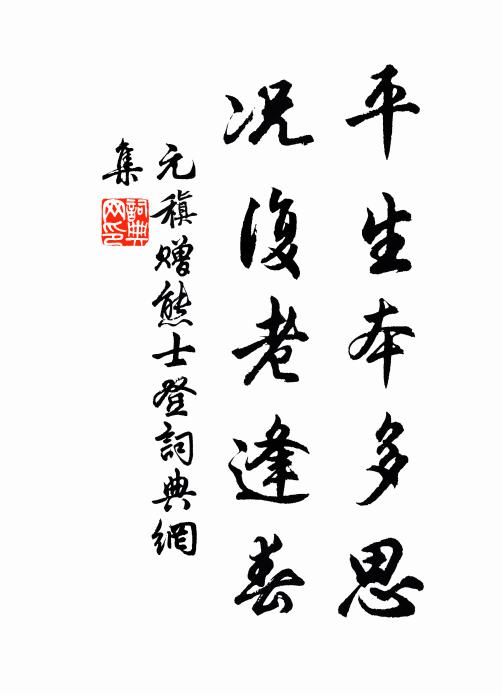 平生本多思
况復老逢春
元稹赠熊士登詞典網
集
詞典
网印